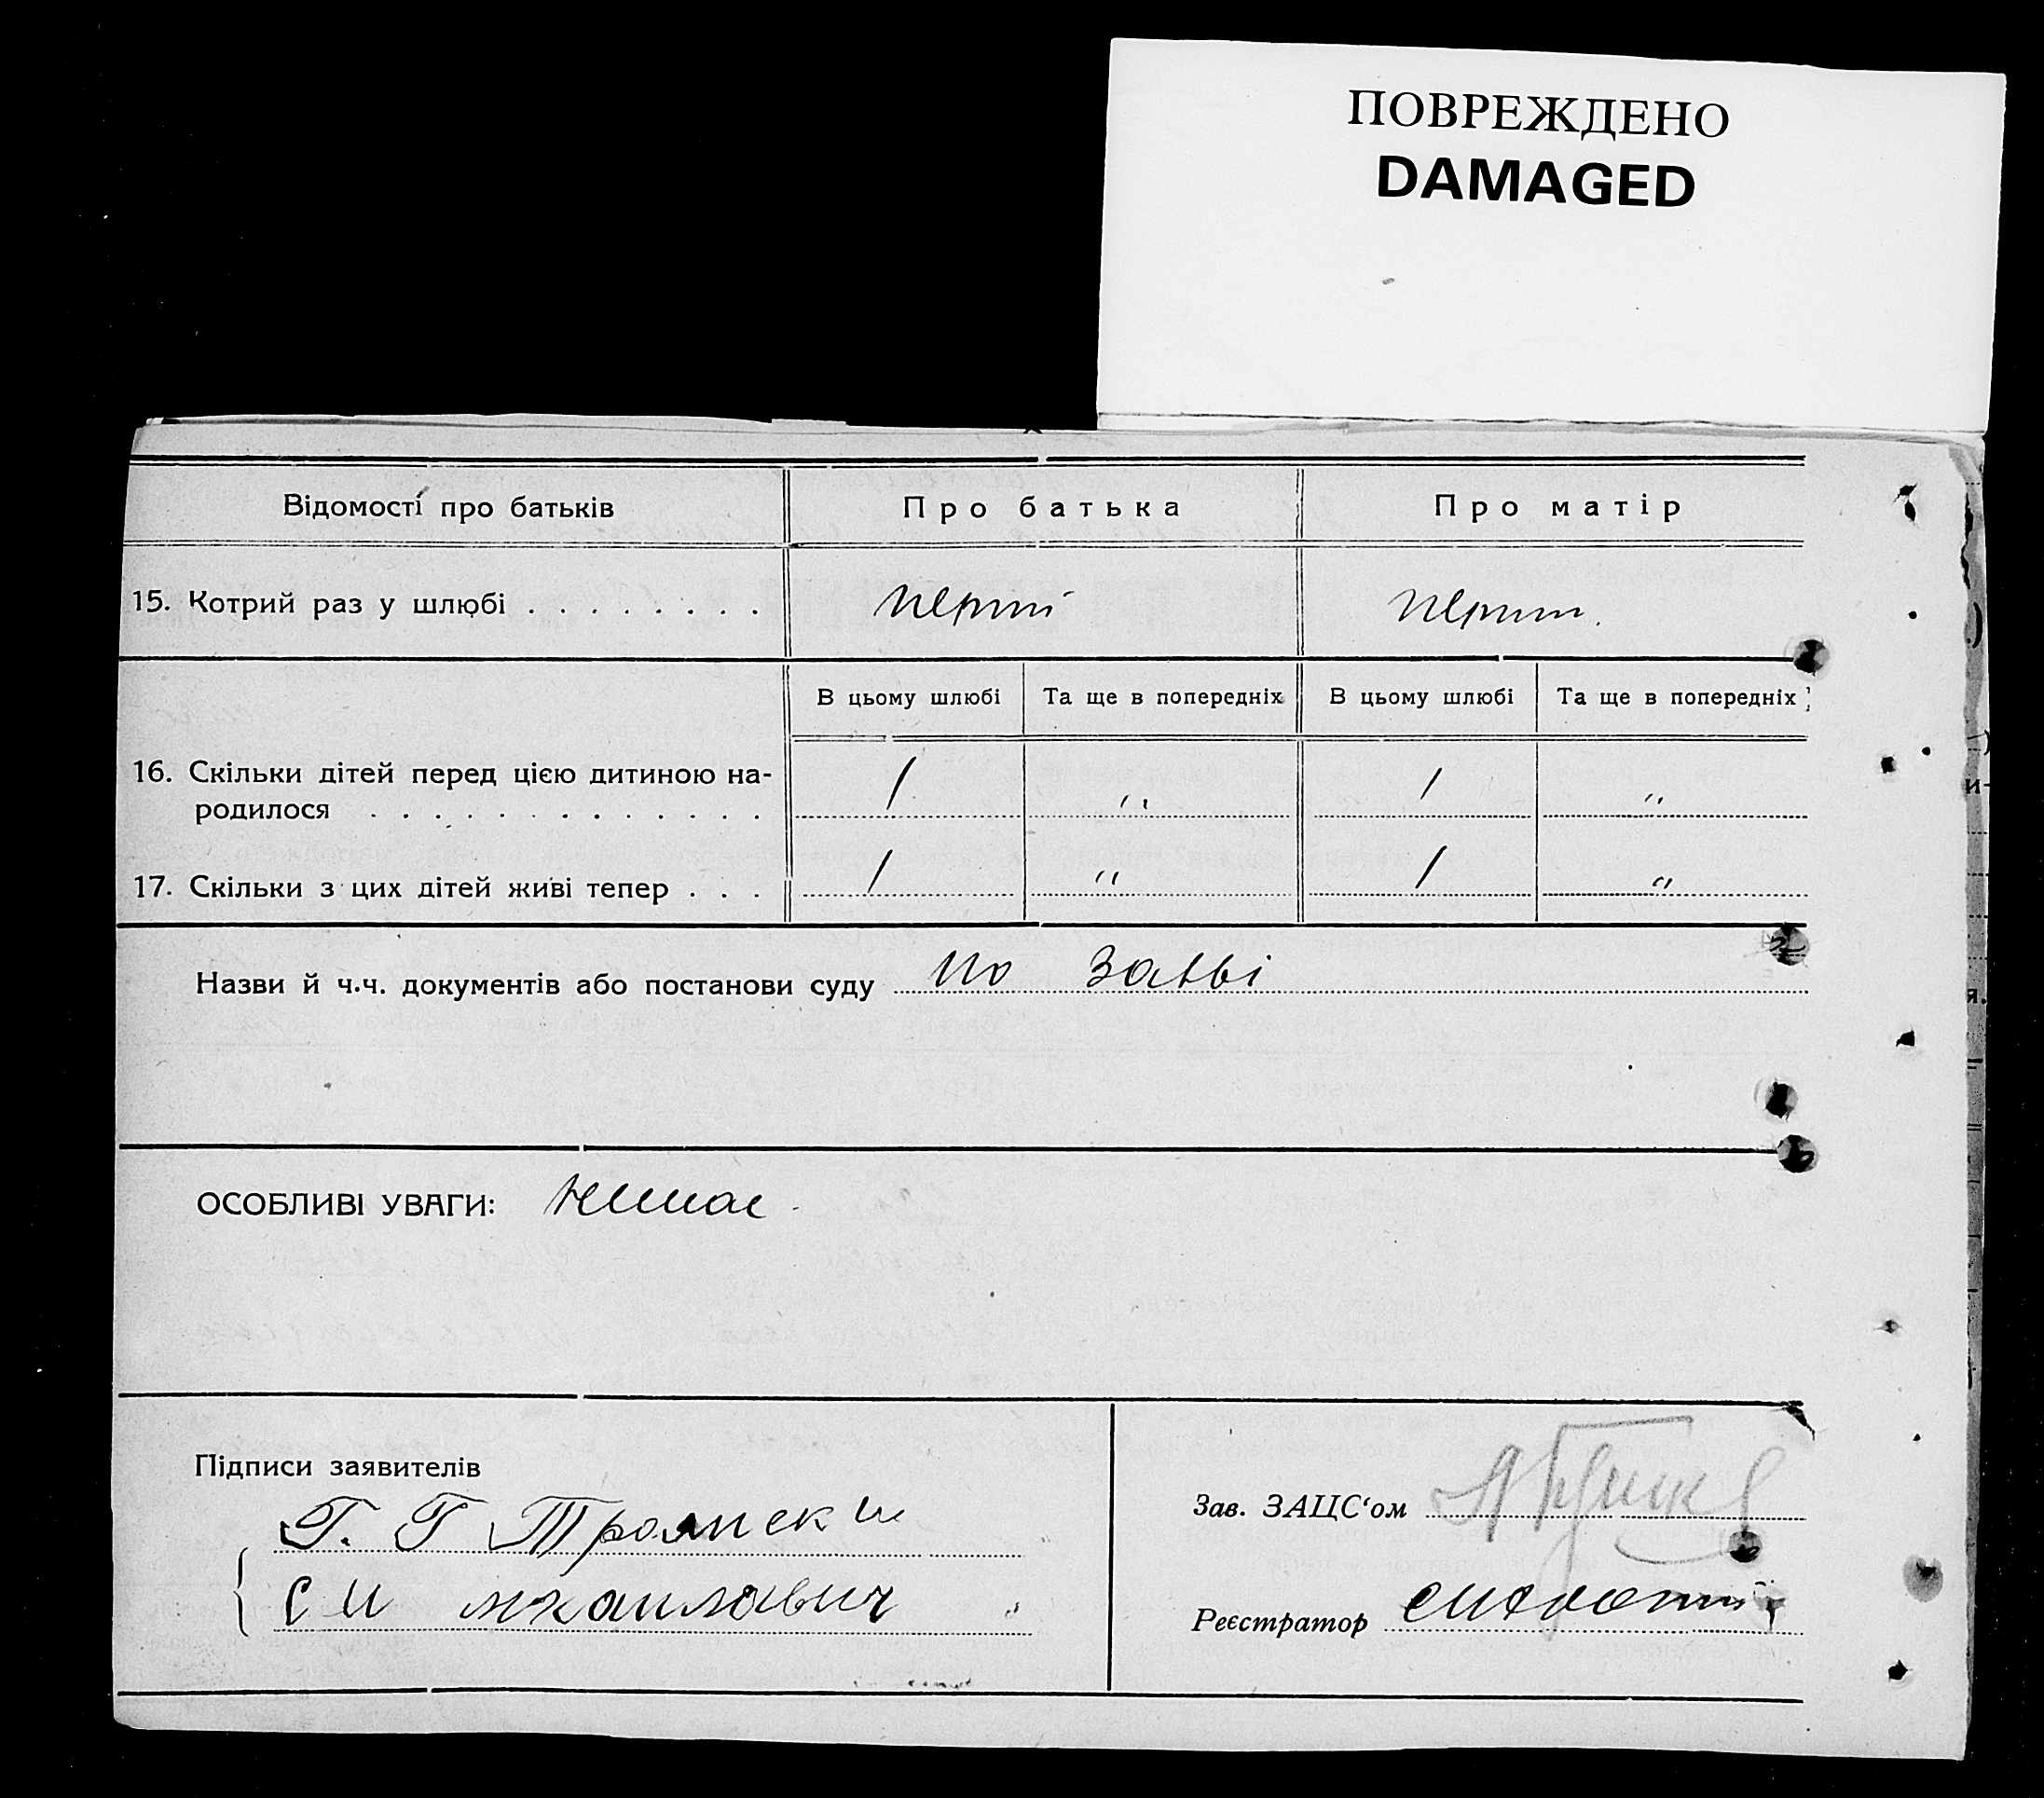 ПОВРЕЖДЕНО
DAMAGED
Відомості про батьків
Про батька
Про матір
15. Котрий раз у шлюбі . . . . . . . .
перший
перший
В цьому шлюбі
Та ще в попередніх
В цьому шлюбі
Та ще в попередніх
16. Скільки дітей перед цією дитиною на-
родилося . . . . . . . . . . . . .
1
"
1
"
17. Скільки з цих дітей живі тепер . . .
1
"
1
"
Назви й ч.ч. документів або постанови суду по заяві
ОСОБЛИВІ УВАГИ: немає
Підписи заявителів
Г. Г
С М
Зав. ЗАЦС‘ом
Реєстратор